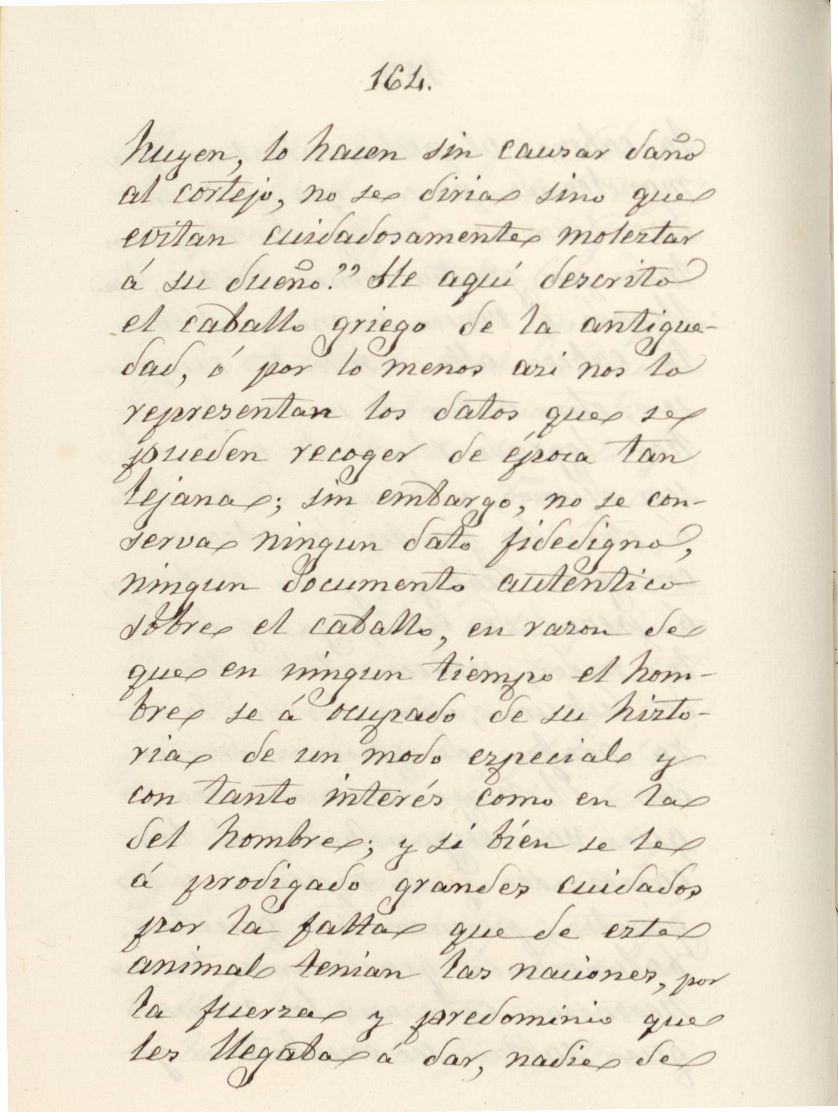 164.
huyen, lo hacen sin causar daño
al cortejo, no se diria sino que
evitan cuidadosamente molestar
á su dueño?" He aquí descrito
el caballo griego de la antigue-
dad, ó por lo menos asi nos lo
representan los datos que se
pueden recoger de época tan
lejana; sin embargo, no se con-
serva ningun dato fidedigno,
ningun documento autentico
sobre el caballo, en razon de
que en ningun tiempo el hom-
bre se á ocupado de su histo-
ria de un modo especial y
con tanto interés como en la
del hombre; y si bien se le
á prodigado grandes cuidados
por la falta que de este
animal tenian las naciones, por
la fuerza y predominio que
les llegaba á dar, nadie de